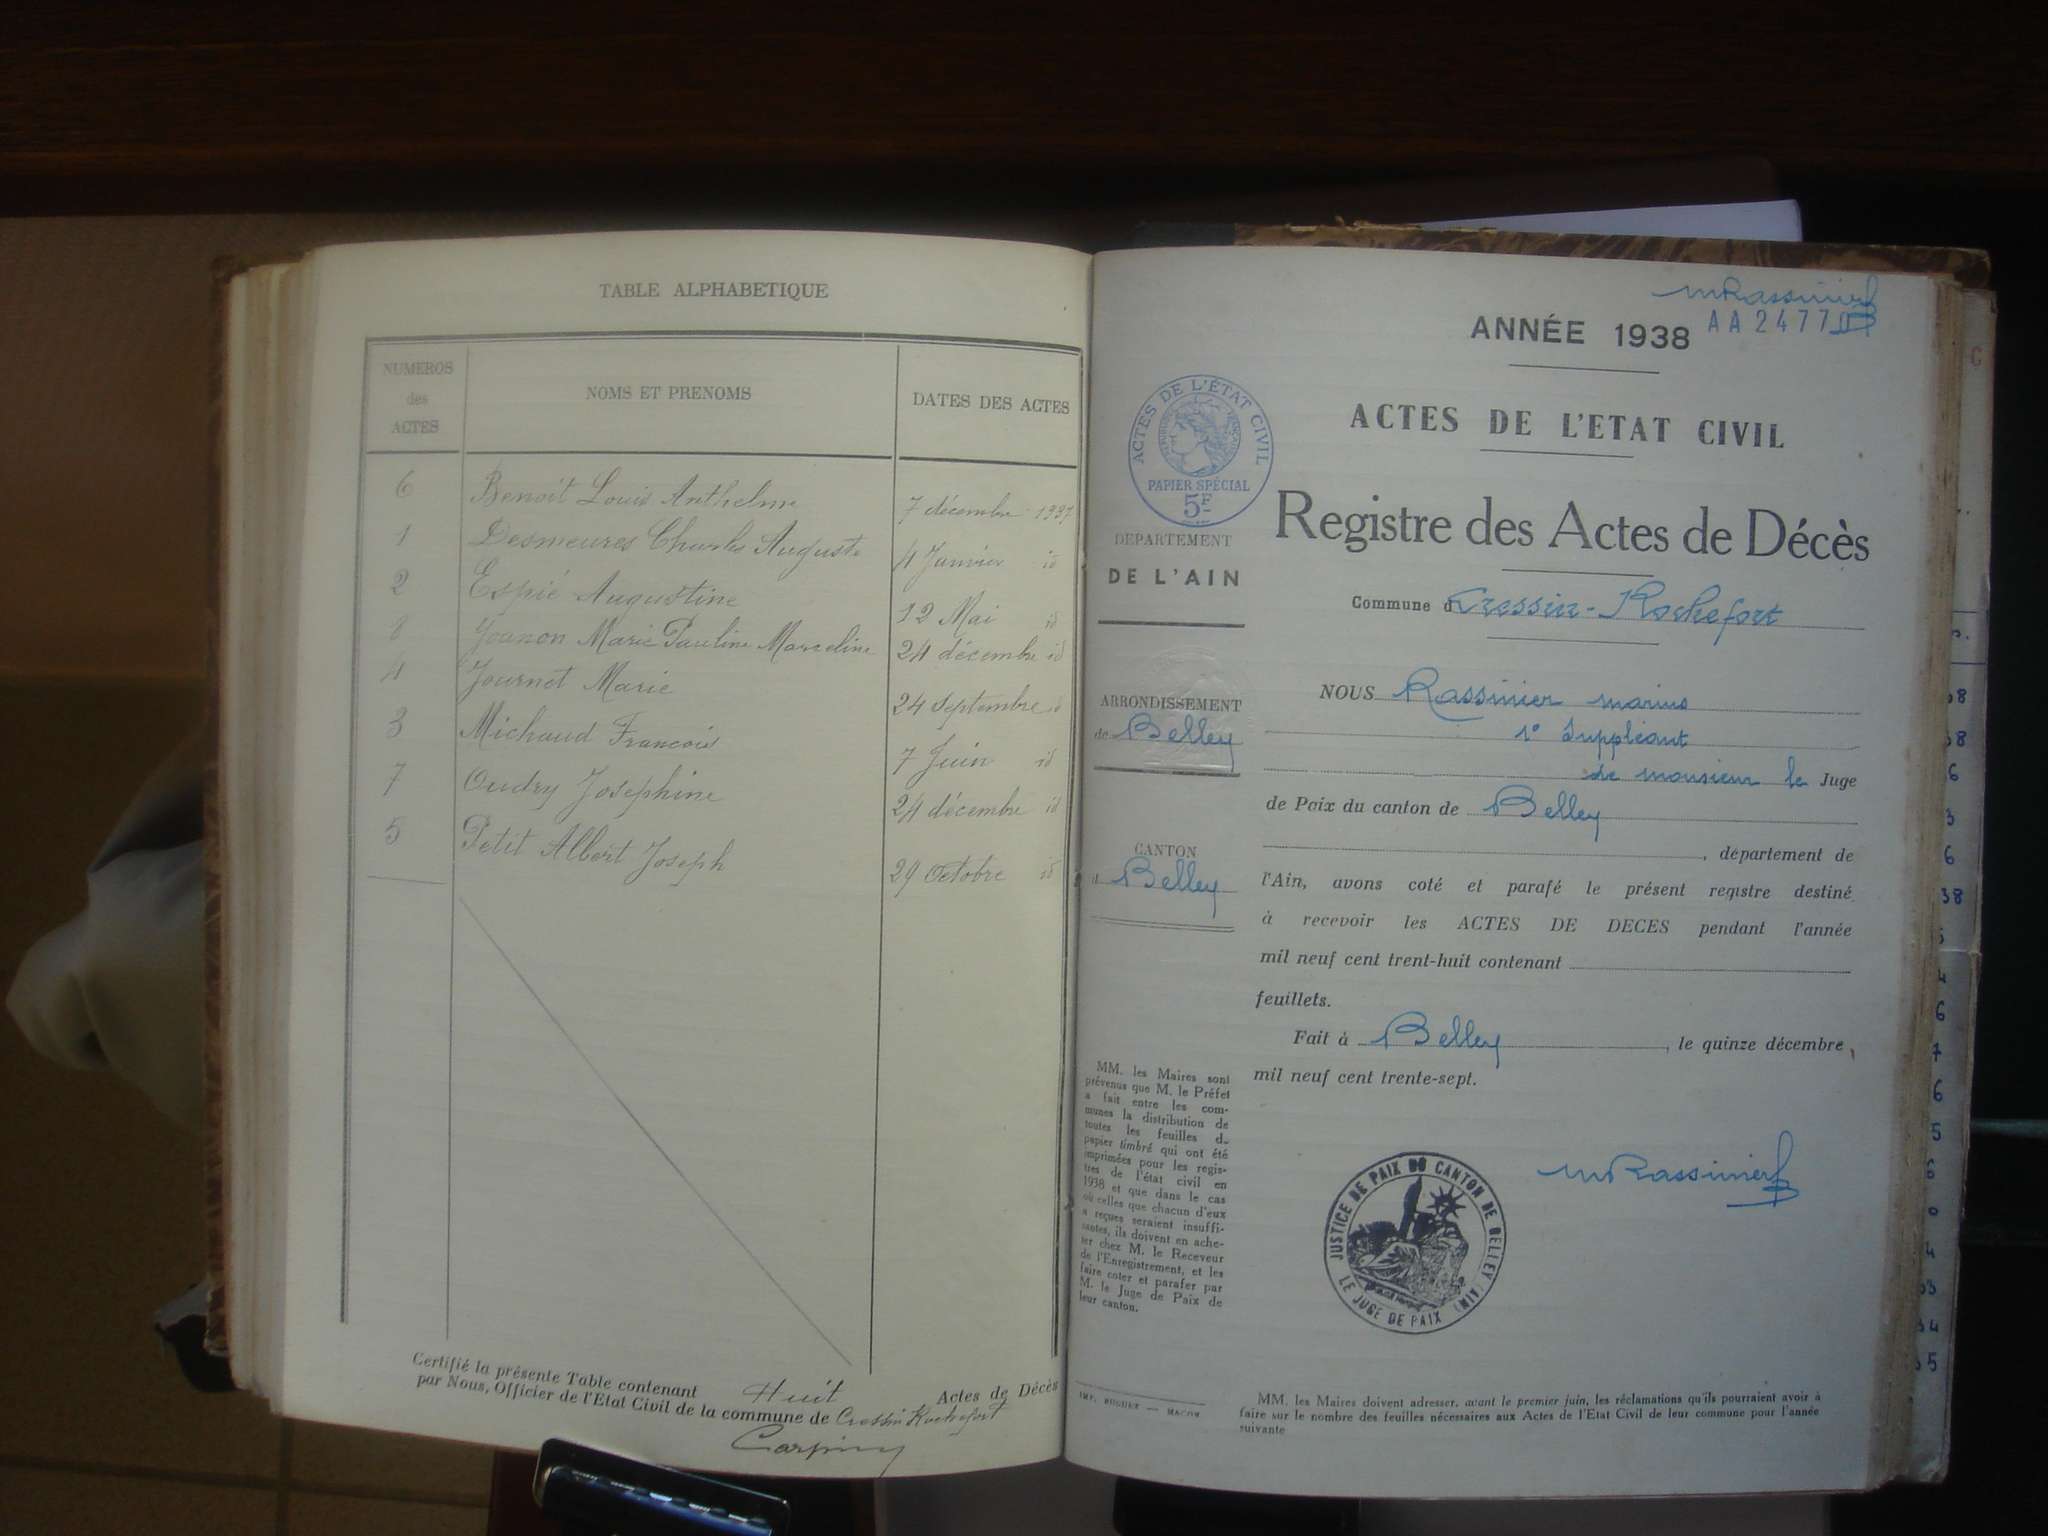 TABLE ALPHABETIQUE
NUMEROS des ACTES
NOMS ET PRENOMS
DATES DES ACTES
6 Benoit Louis Anthelme 7 décembre 1937
1 Desmeures Charles Auguste 4 Janvier id
2 Espié Augustine 12 Mai id
8 Joanon Marie Pauline Marceline 24 décembre id
4 Journet Marie 24 septembre id
3 Michaud Francois 7 Juin id
7 Oudry Josephine 24 décembre id
5 Petit Albert Joseph 29 octobre id
Certifié la présente Table contenant Huit Actes de Décès
par Nous, Officier de l'Etat Civil de la commune de Cressin Rochefort
mRassinier
AA 2477
ANNÉE 1938
ACTES DE L'ÉTAT CIVIL
PAPIER SPÉCIAL
5F
ACTES DE L'ETAT CIVIL
Registre des Actes de Décès
DEPARTEMENT
DE L'AIN
Commune d Cressin-Rochefort
ARRONDISSEMENT
de Belley
CANTON
Belley
NOUS Rassinier marius
1° Suppléant
de monsieur le Juge
de Paix du canton de Belley
, département de
l'Ain, avons coté et parafé le présent registre destiné
à recevoir les ACTES DE DECES pendant l'année
mil neuf cent trent-huit contenant
feuillets.
Fait à Belley, le quinze décembre
mil neuf cent trente-sept.
MM. les Maires sont
prévenus que M. le Préfet
a fait entre les com-
munes la distribution de
toutes les feuilles d
papier timbré qui ont été
imprimées pour les regis-
tres de l'état civil en
1938 et que dans le cas
où celles que chacun d'eux
a reçues seraient insuffi-
santes, ils doivent en ache-
ter chez M. le Receveur
de l'Enregistrement, et les
faire coter et parafer par
M. le Juge de Paix de
leur canton.
mRassinier
JUSTICE DE PAIX DU CANTON DE BELLEY (AIN)
LE JUGE DE PAIX
IMP. BUGUET — MACON
MM. les Maires doivent adresser, avant le premier juin, les réclamations qu'ils pourraient avoir à
faire sur le nombre des feuilles nécessaires aux Actes de l'Etat Civil de leur commune pour l'année
suivante